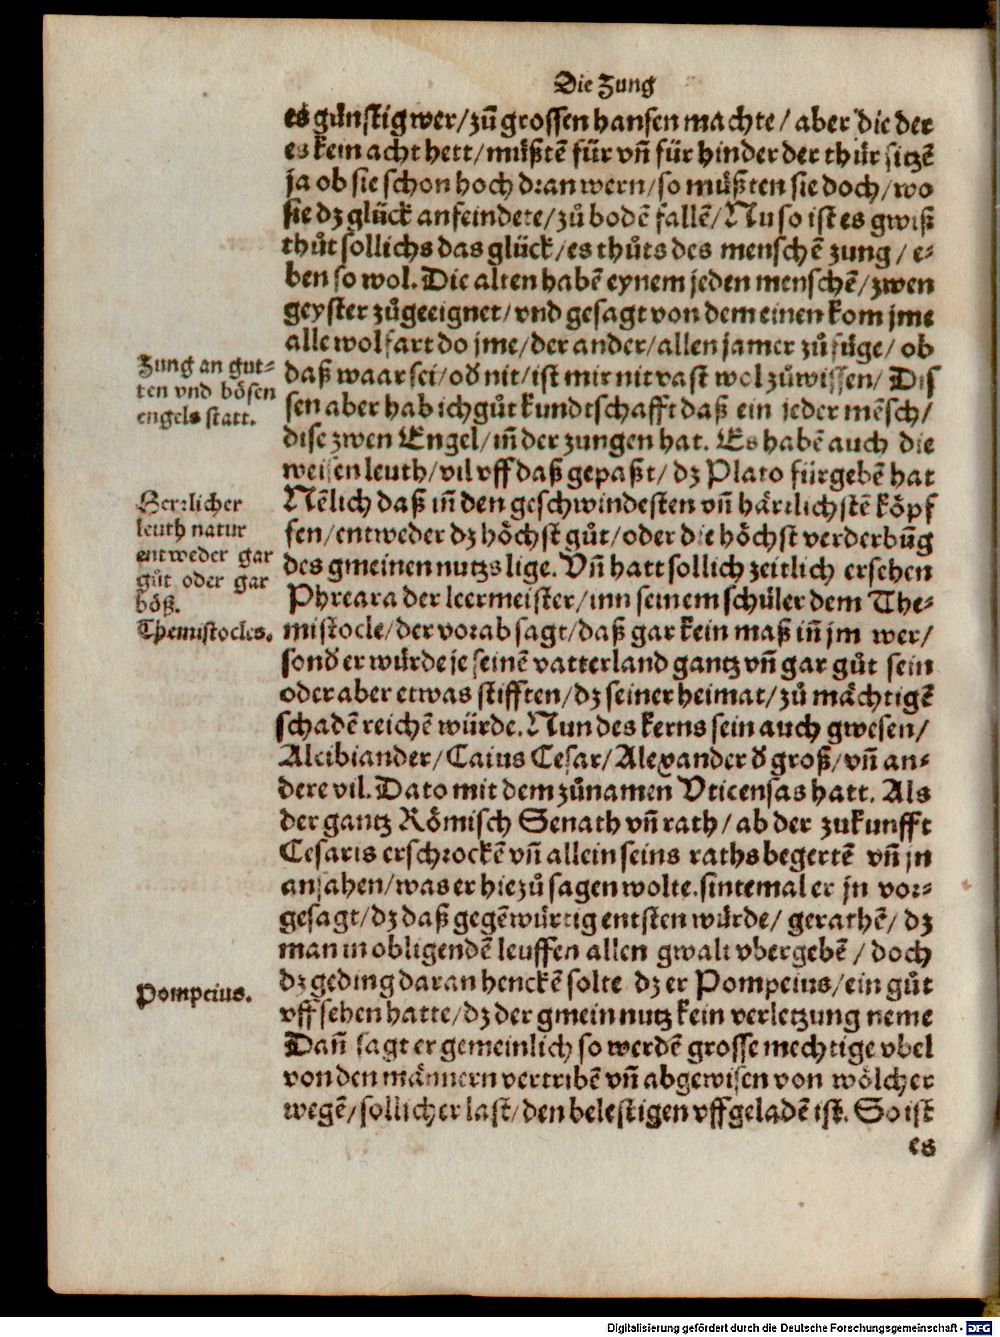 Die Zung
es günstig wer/zuͦ grossen hansen machte/ aber die der
es kein acht hett/müßtē für vñ für hinder der thür sitzē
ja ob sie schon hoch dran wern/so müßten sie doch/wo
sie dz glück anfeindete/zuͦ bodē fallē/Nu so ist es gwiß
thuͦt sollichs das glück/es thuͦts des menschē zung / e-
ben so wol. Die alten habē eynem jeden menschē/zwen
geyster zuͦgeeignet/vnd gesagt von dem einen kom jme
alle wolfart do jme/der ander/allen jamer zuͦfüge/ ob
daß waar sei/oď nit/ist mir nit vast wol zuͦwissen/ Dis
sen aber hab ich guͦt kundtschafft daß ein jeder mēsch/
dise zwen Engel/iñ der zungen hat. Es habē auch die
weisen leuth/vil vff daß gepaßt/dz Plato fürgebē hat
Nēlich daß iñ den geschwindesten vñ härtlichstē köpf
fen/entweder dz höchst guͦt/oder die höchst verderbūg
des gmeinen nutzs lige. Vñ hatt sollich zeitlich ersehen
Phreara der leermeister/inn seinem schüler dem The-
mistocle/der vorab sagt/daß gar kein maß iñ jm wer/
sonď er würde je seinē vatterland gantz vñ gar guͦt sein
oder aber etwas stifften/dz seiner heimat/zuͦ mächtigē
schadē reichē würde. Nun des kerns sein auch gwesen/
Alcibiander/Caius Cesar/Alexander ď groß/vñ an-
dere vil. Dato mit dem zuͦnamen Vticensas hatt. Als
der gantz Römisch Senath vñ rath/ab der zukunfft
Cesaris erschrockē vñ allein seins raths begertē vñ jn
ansahen/was er hiezuͦ sagen wolte.sintemal er jn vor-
gesagt/dz daß gegēwürtig entsten würde/ gerathē/ dz
man in obligendē leuffen allen gwalt vbergebē / doch
dz geding daran henckē solte dz er Pompeius/ein guͦt
vffsehen hatte/dz der gmein nutz kein verletzung neme
Dañ sagt er gemeinlich so werdē grosse mechtige vbel
von den männern vertribē vñ abgewisen von wölcher
wegē/sollicher last/den belestigen vffgeladē ist. So ist
es
Zung an gut-
ten vnd bösen
engels statt.
Herrlicher
leuth natur
entweder gar
guͦt oder gar
böß.
Themistocles.
Pompeius.
Digitalisierung gefördert durch die Deutsche Forschungsgemeinschaft - DFG